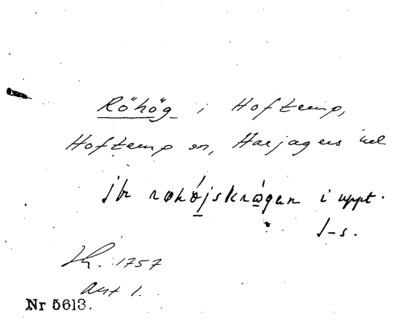 Röhög i Hofterup,
Hofterup sn, Harjagers hd
jfr rohöjskrogen i uppt.
J-s.
1757
akt 1.
Nr 5613.